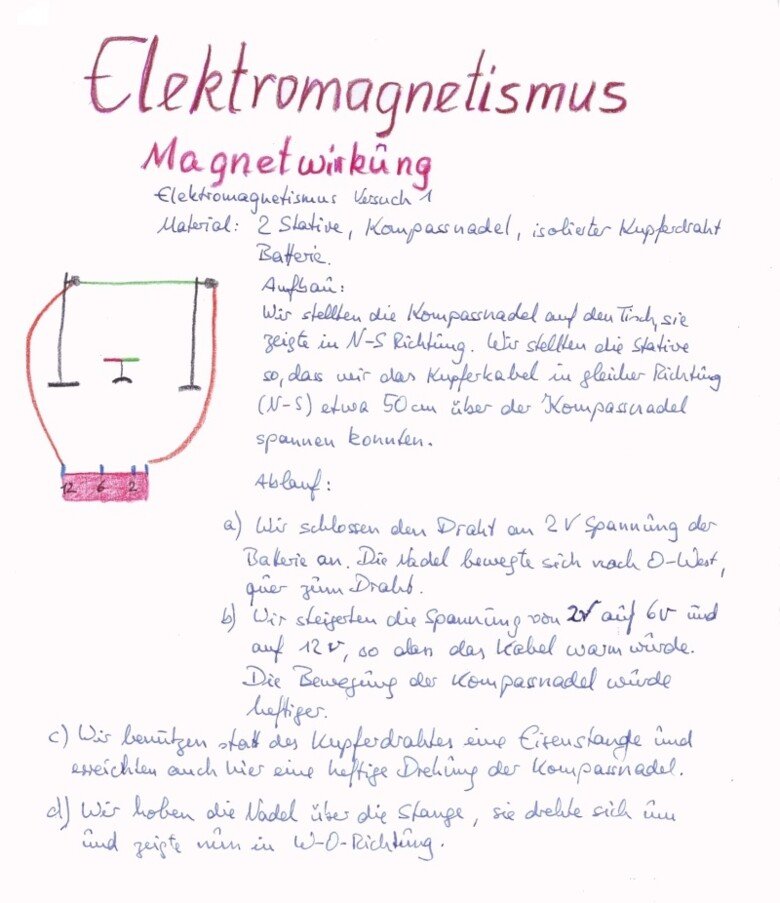 Elektromagnetismus
Magnetwirkung
Elektromagnetismus Versuch 1
Material: 2 Stative, Kompassnadel, isolierter Kupferdraht
Batterie.
Aufbau:
Wir stellten die Kompassnadel auf den Tisch, sie
zeigte in N-S Richtung. Wir stellten die Stative
so, dass wir das Kupferkabel in gleicher Richtung
(N-S) etwa 50cm über der Kompassnadel
spannen konnten.
12 6 2
Ablauf:
a) Wir schlossen den Draht an 2V Spannung der
Batterie an. Die Nadel bewegte sich nach O-West,
quer zum Draht.
b) Wir steigerten die Spannung von 2V auf 6V und
auf 12V, so dass das Kabel warm wurde.
Die Bewegung der Kompasnadel wurde
heftiger.
c) Wir benützen statt des Kupferdrahtes eine Eisenstange und
erreichten auch hier eine heftige Drehung der Kompasnadel.
d) Wir hoben die Nadel über die Stange, sie drehte sich um
und zeigte nun in W-O-Richtung.